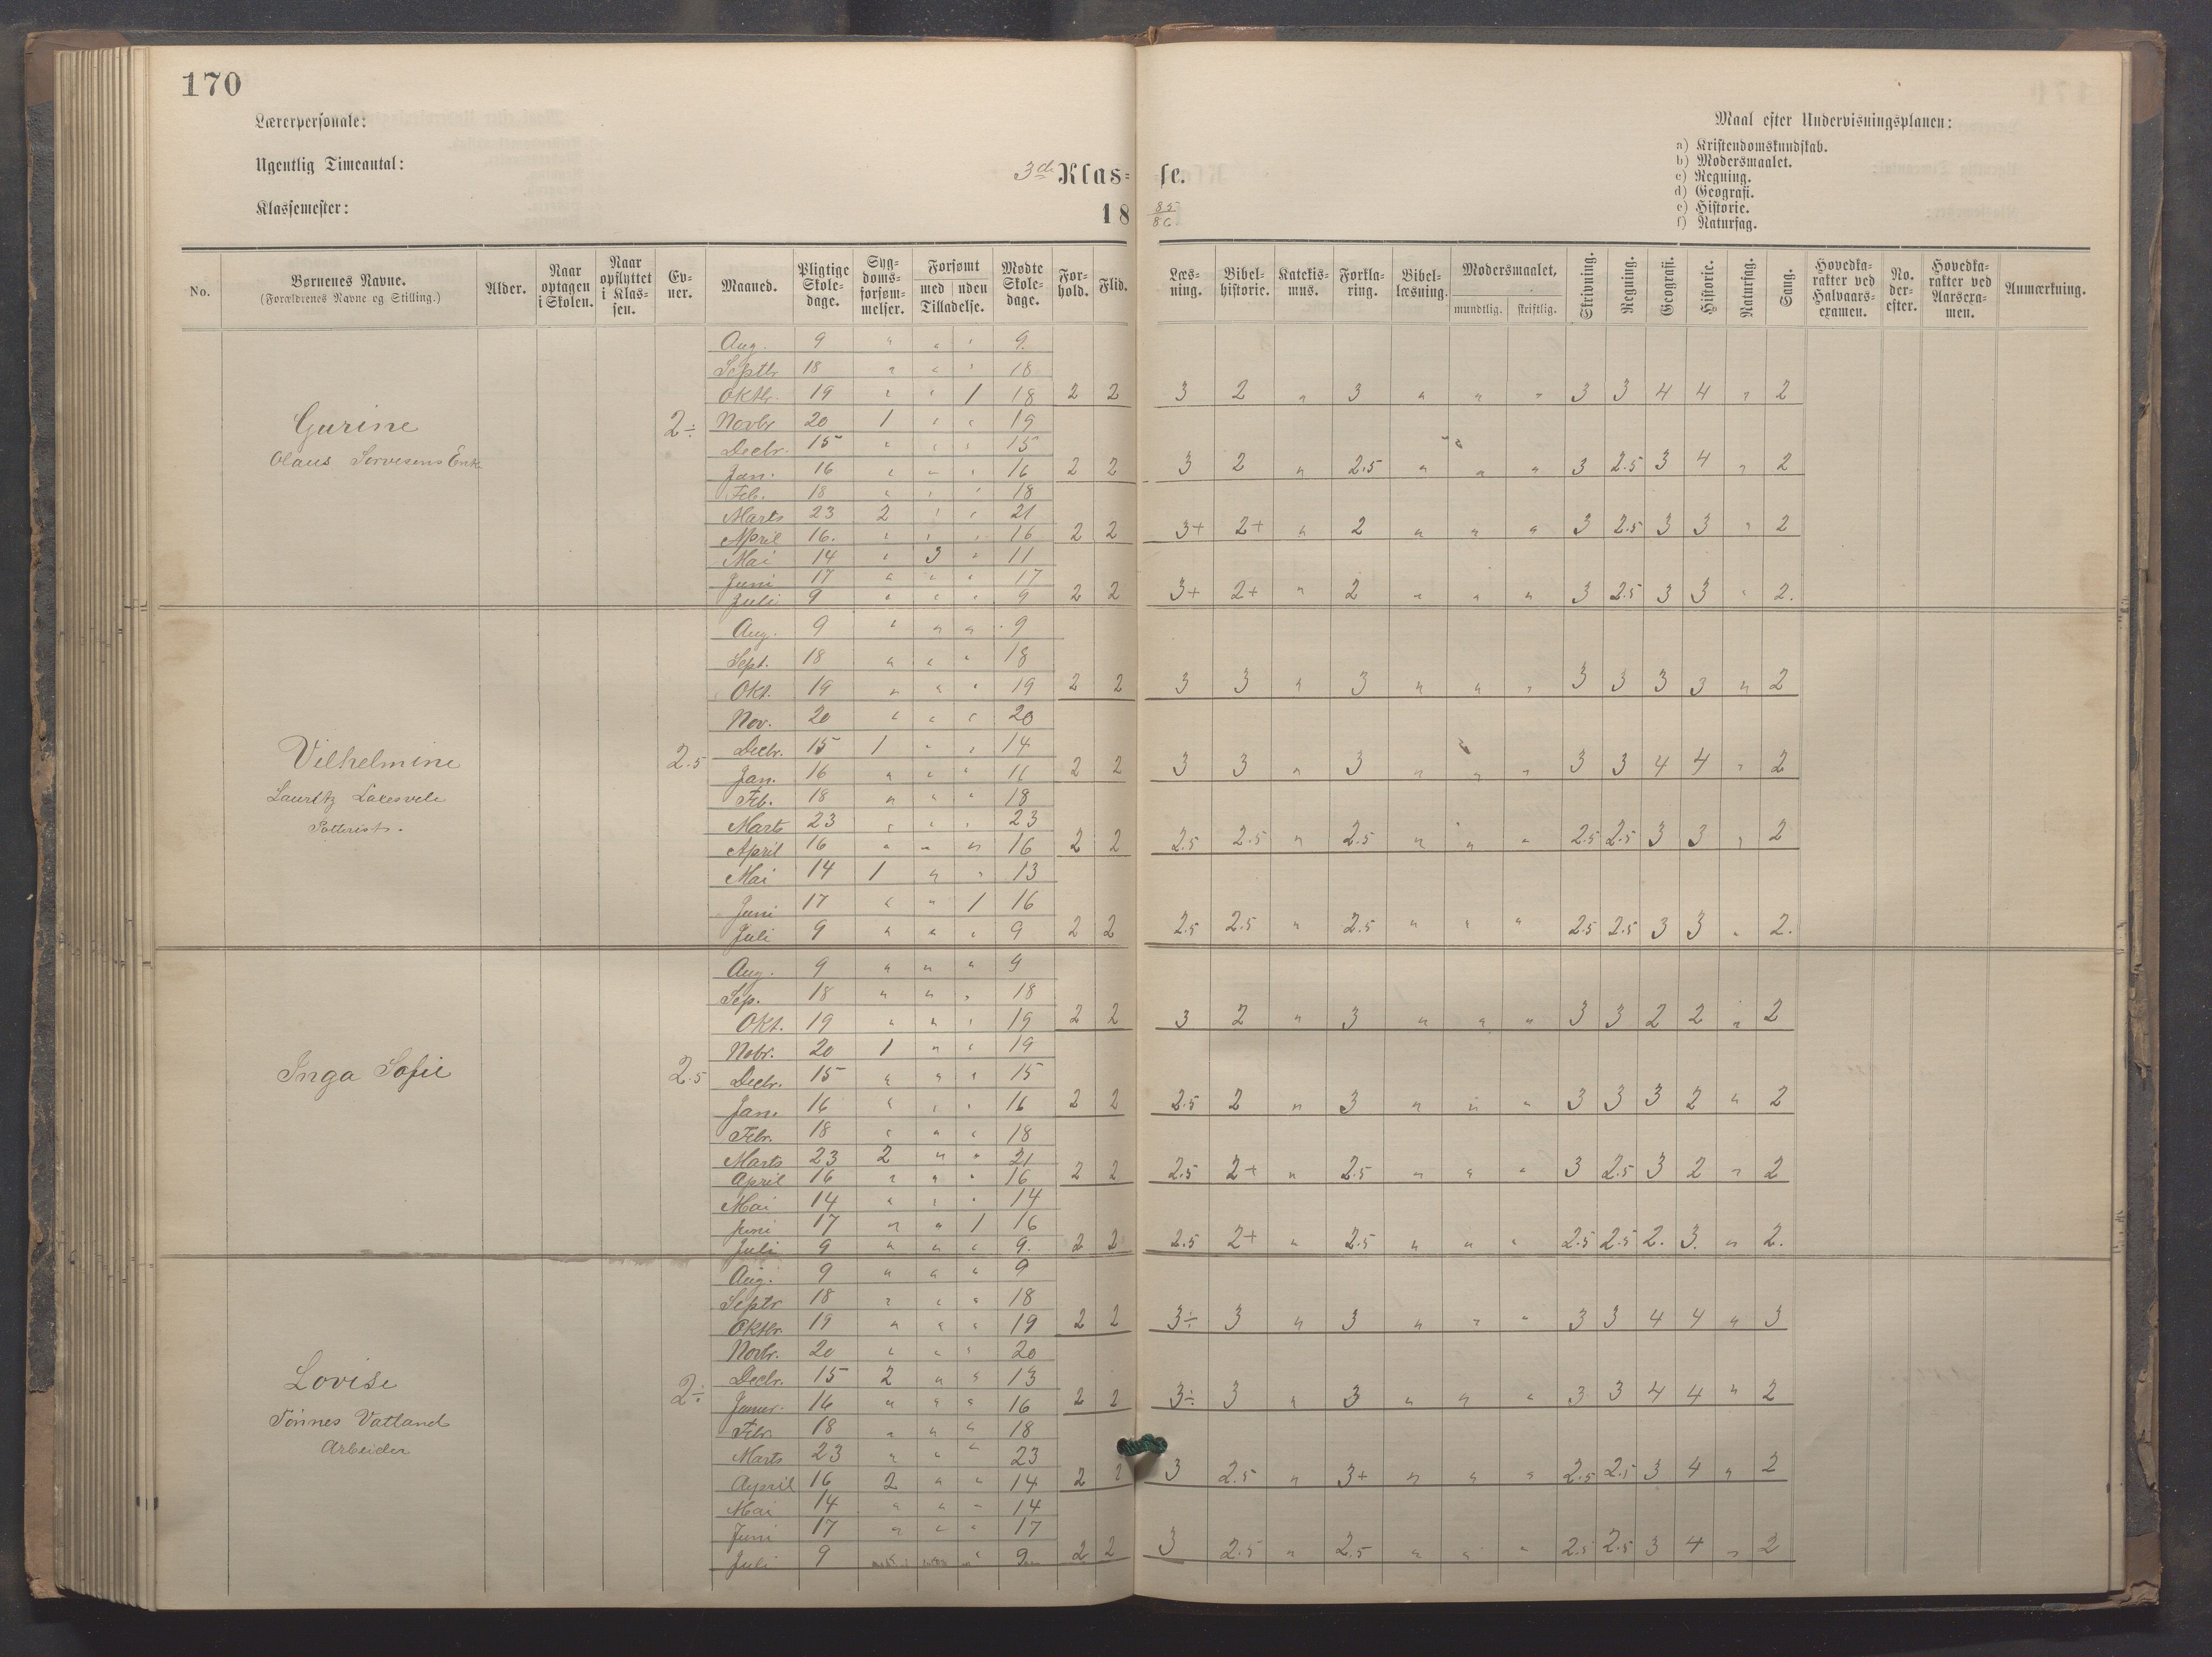 170
Lærerpersonale:
Ugentlig Timeantal:
Klassemester:
3die Klas- se.
18 85/86.
Maal efter Undervisningsplanen:
a) Kristendomskundskab.
b) Modersmaalet.
c) Regning.
d) Geografi.
e) Historie.
f) Naturfag.
No. | Børnenes Navne. (Forældrenes Navne og Stilling.) | Alder. | Naar optagen i Skolen. | Naar opflyttet i Klassen. | Evner. | Maaned. | Pligtige Skoledage. | Sygdomsforsømmelser. | Forsømt med / uden Tilladelse. | Mødte Skoledage. | Forhold. | Flid. | Læsning. | Bibelhistorie. | Katekismus. | Forklaring. | Bibellæsning. | Modersmaalet, mundtlig. / skriftlig. | Skrivning. | Regning. | Geografi. | Historie. | Naturfag. | Sang. | Hovedkarakter ved Halvaarsexamen. | No. derefter. | Hovedkarakter ved Aarsexamen. | Anmærkning.
Gurine
Olaus Enk
2÷
Aug. 9 " " " 9.
Septbr 18 " " " 18
Oktbr. 19 " " 1 18 2 2 3 2 " 3 " " " 3 3 4 4 " 2
Novbr 20 1 " " 19
Decbr. 15 " " " 15
Jan. 16 " " " 16 2 2 3 2 " 2.5 " " " 3 2.5 3 4 " 2
Feb. 18 " " " 18
Marts 23 2 " " 21
April 16. " " " 16 2 2 3+ 2+ " 2 " " " 3 2.5 3 3 " 2
Mai 14 " 3 " 11
Juni 17 " " " 17
Juli 9 " " " 9 2 2 3+ 2+ " 2 " " " 3 2.5 3 3 " 2.
Vilhelmine
Lauritz
2.5
Aug. 9 " " " 9
Sept. 18 " " " 18
Okt. 19 " " " 19 2 2 3 3 " 3 " " " 3 3 3 3 " 2
Nov. 20 " " " 20
Decbr. 15 1 " " 14
Jan. 16 " " " 16 2 2 3 3 " 3 " " " 3 3 4 4 " 2
Feb. 18 " " " 18
Marts 23 " " " 23
April 16 " " " 16 2 2 2.5 2.5 " 2.5 " " " 2.5 2.5 3 3 " 2
Mai 14 1 " " 13
Juni 17 " " 1 16
Juli 9 " " " 9 2 2 2.5 2.5 " 2.5 " " " 2.5 2.5 3 3 " 2.
Inga Sofie
2.5
Aug. 9 " " " 9
Sep. 18 " " " 18
Okt. 19 " " " 19 2 2 3 2 " 3 " " " 3 3 2 2 " 2
Nobr. 20 1 " " 19
Decbr. 15 " " " 15
Jan. 16 " " " 16 2 2 2.5 2 " 3 " " " 3 3 3 2 " 2
Febr. 18 " " " 18
Marts 23 2 " " 21
April 16 " " " 16 2 2 2.5 2+ " 2.5 " " " 3 2.5 3 2 " 2
Mai 14 " " " 14
Juni 17 " " 1 16
Juli 9 " " " 9. 2 2 2.5 2+ " 2.5 " " " 2.5 2.5 2. 3. " 2.
Lovise
Tönnes Vatland
Arbeider
2÷
Aug. 9 " " " 9
Septr 18 " " " 18
Oktbr. 19 " " " 19 2 2 3÷ 3 " 3 " " " 3 3 4 4 " 3
Novbr. 20 " " " 20
Decbr. 15 2 " " 13
Januar. 16 " " " 16 2 2 3÷ 3 " 3 " " " 3 3 4 4 " 2
Febr. 18 " " " 18
Marts 23 " " " 23
Aypril 16 2 " " 14 2 2 3 2.5 " 3+ " " " 2.5 2.5 3 4 " 2
Mai 14 " " " 14
Juni 17 " " " 17
Juli 9 " " " 9 2 2 3 2.5 " 2.5 " " " 2.5 2.5 3 4 " 2